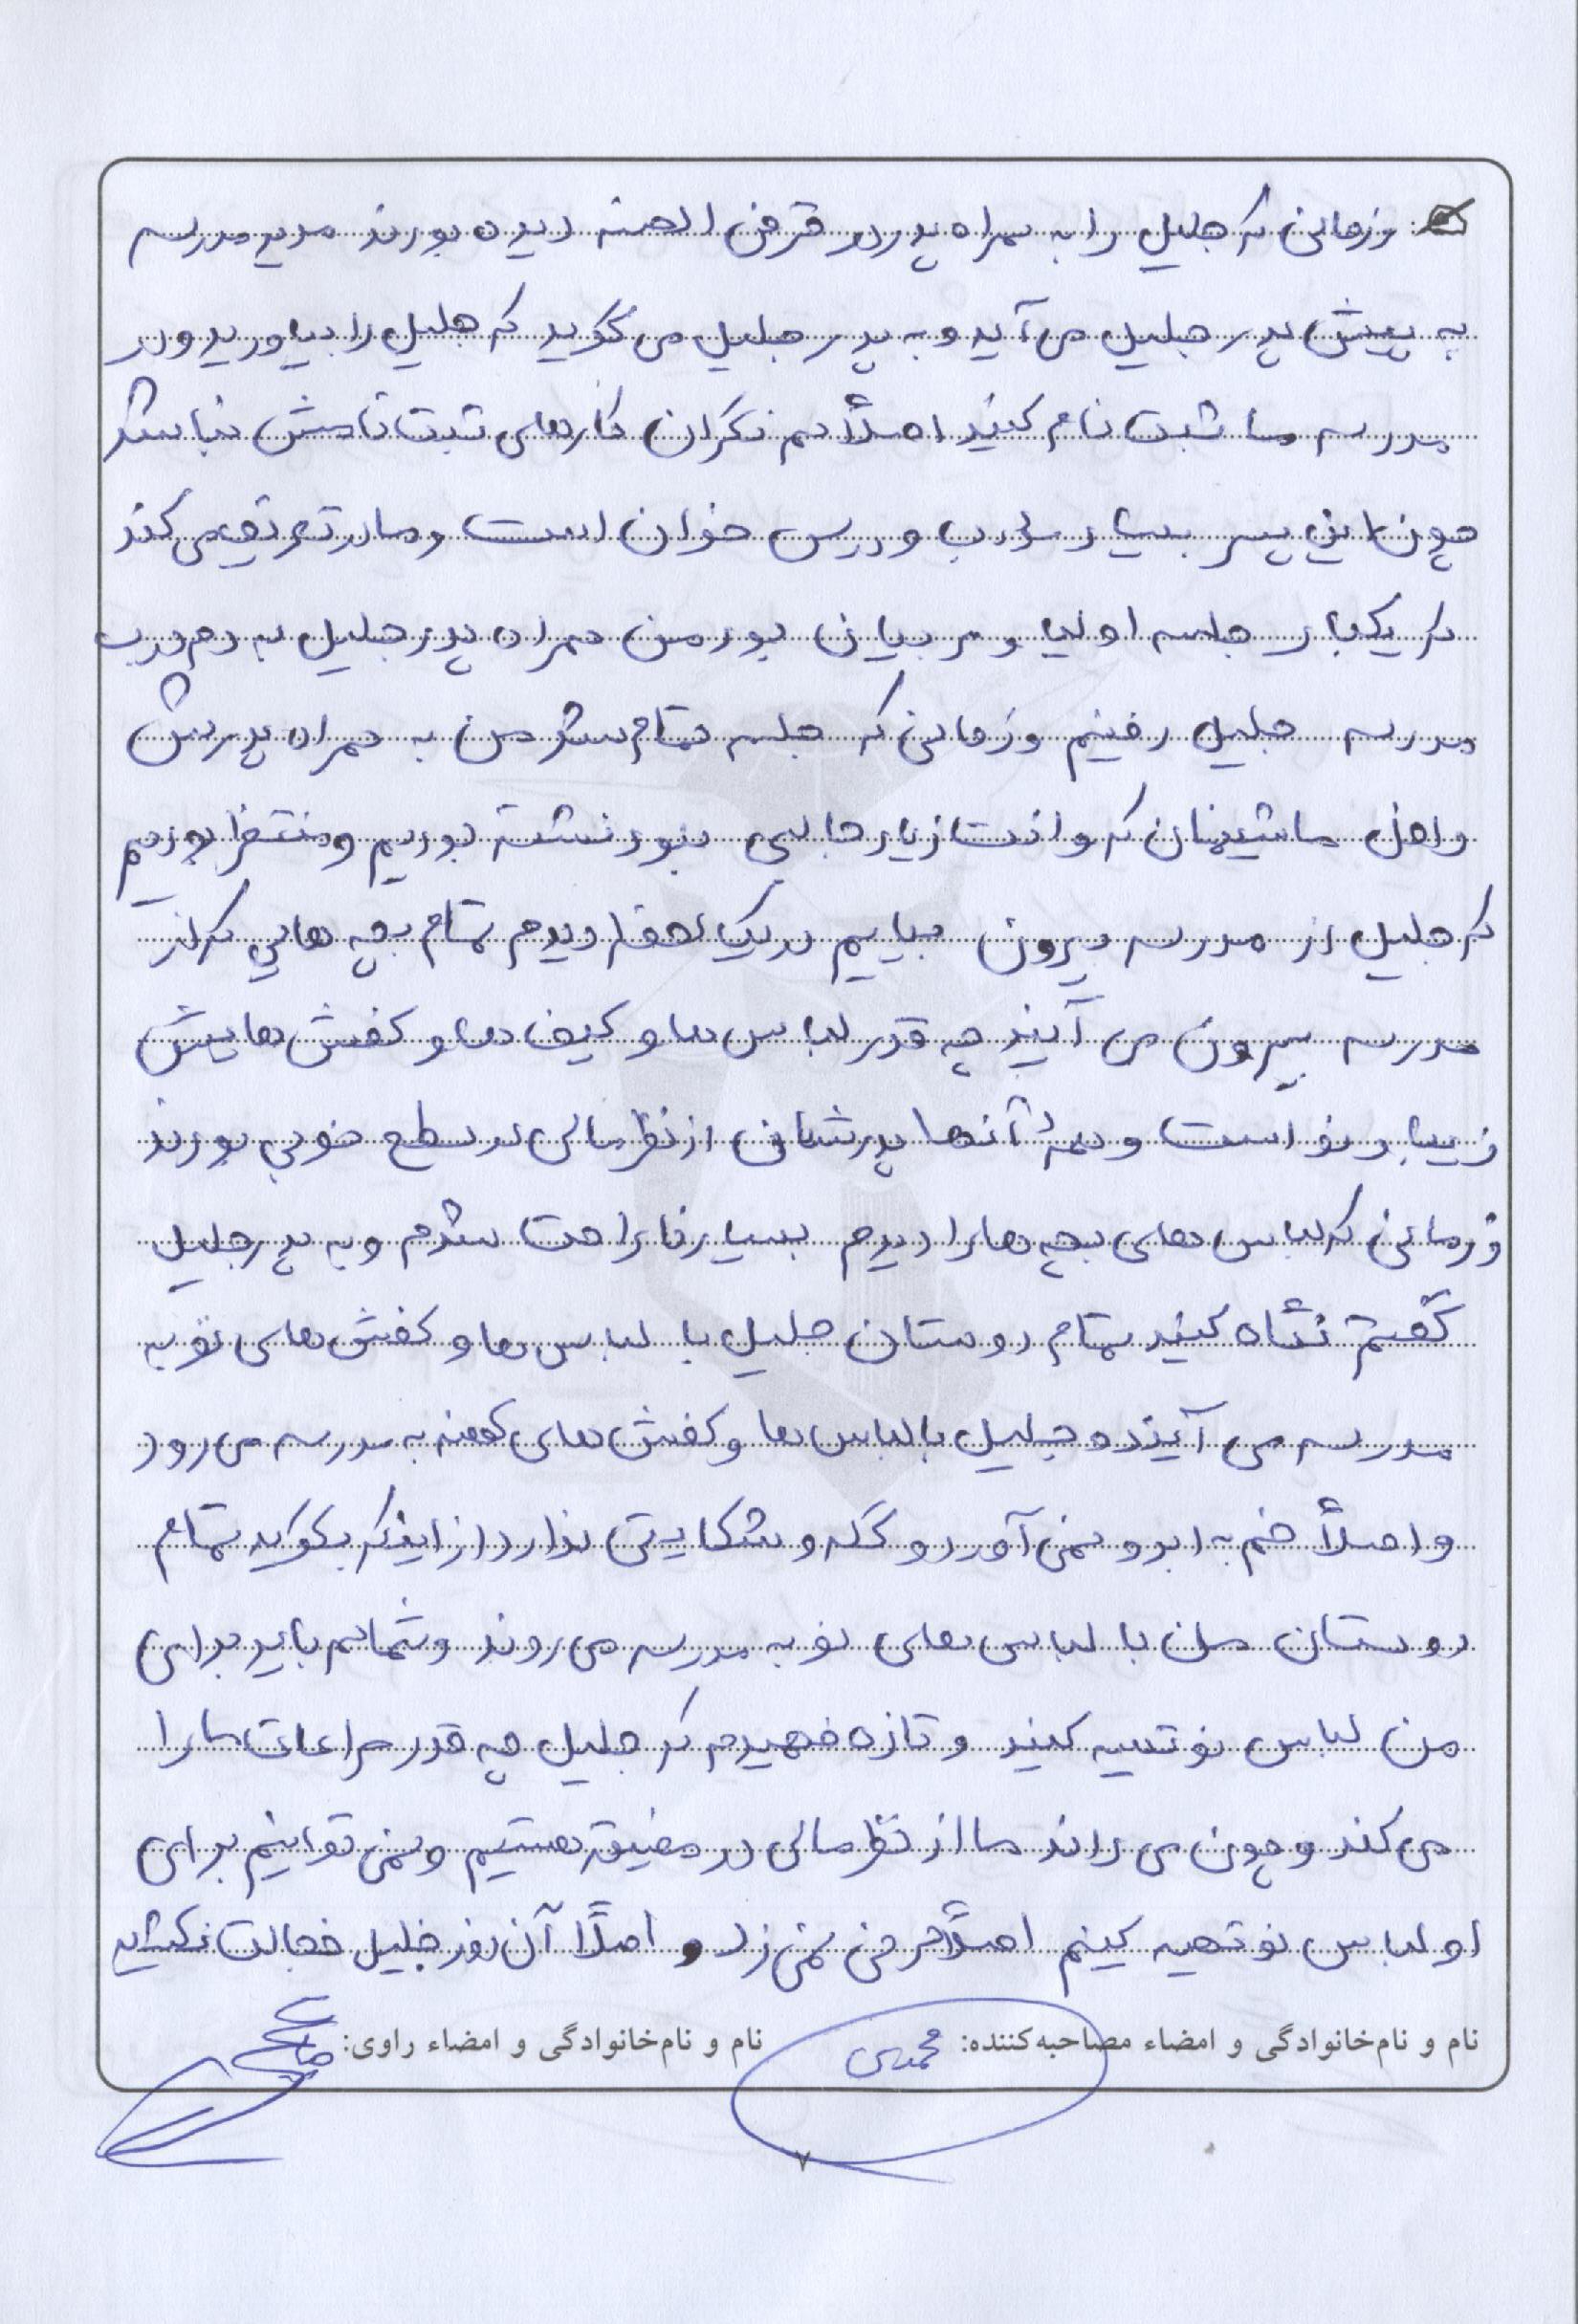 وزمانی که جلیل را به همراه پدر در قرض الحسنه دیده بودند مدیر مدرسه
به پیش پدر جلیل می آید و به پدر جلیل می گوید که جلیل را بیاورید و در
مدرسه ما ثبت نام کنید اصلاً هم نگران کارهای ثبت نامش نباشد
چون این پسر بسیار مؤدب و درس خوان است و مادر تعریف می کند
که یکبار جلسه اولیا و مربیان بود من همراه پدر جلیل به دم درب
مدرسه جلیل رفتیم و زمانی که جلسه تمام شد من به همراه پدرش
داخل ماشینمان که وانت زیاد جالبی نبود نشسته بودیم و منتظر بودیم
که جلیل از مدرسه بیرون بیایم در یک لحظه دیدم تمام بچه هایی که از
مدرسه بیرون می آیند چه قدر لباس ها و کیف ها و کفش هایش
زیبا و نو است و همهٔ آنها پدرشان از نظر مالی در سطح خوبی بودند
زمانی که لباس های بچه ها را دیدم بسیار ناراحت شدم و به پدر جلیل
گفتم نگاه کنید تمام دوستان جلیل با لباس ها و کفش های نو به
مدرسه می آیند و جلیل با لباس ها و کفش های کهنه به مدرسه می رود
و اصلاً خم به ابرو نمی آورد و گله و شکایتی ندارد از اینکه بگوید تمام
دوستان من با لباس های نو به مدرسه می روند و شما هم باید برای
من لباس نو تهیه کنید و تازه فهمیدم که جلیل چه قدر مراعات ما را
می کند و چون می داند ما از نظر مالی در مضیقه هستیم و نمی توانیم برای
او لباس نو تهیه کنیم اصلاً حرفی نمی زد و اصلاً آن روز جلیل خجالت نکشید
نام و نام‌خانوادگی و امضاء مصاحبه‌کننده: محمدی نام و نام‌خانوادگی و امضاء راوی:
۷